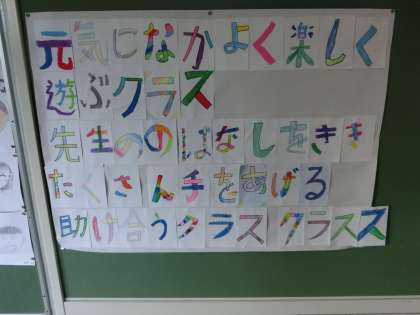 元気になかよく楽しく
遊ぶクラス
先生ののはなしをきき
たくさん手をあげる
助け合うクラスクラスス